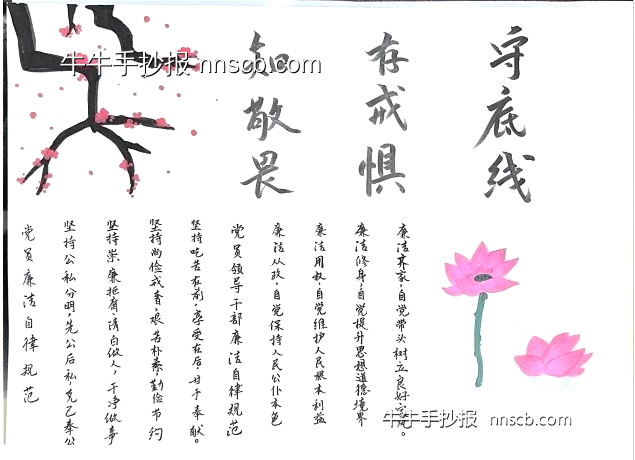 牛牛手抄报 nnscb.com
知敬畏
存戒惧
守底线
党员廉洁自律规范
坚持公私分明,先公后私,克己奉公
坚持崇廉拒腐,清白做人,干净做事
坚持尚俭戒奢,艰苦朴素,勤俭节约
坚持吃苦在前,享受在后,甘于奉献。
党员领导干部廉洁自律规范
廉洁从政,自觉保持人民公仆本色
廉洁用权,自觉维护人民根本利益
廉洁修身,自觉提升思想道德境界
廉洁齐家,自觉带头树立良好家风。
牛牛手抄报 nnscb.com